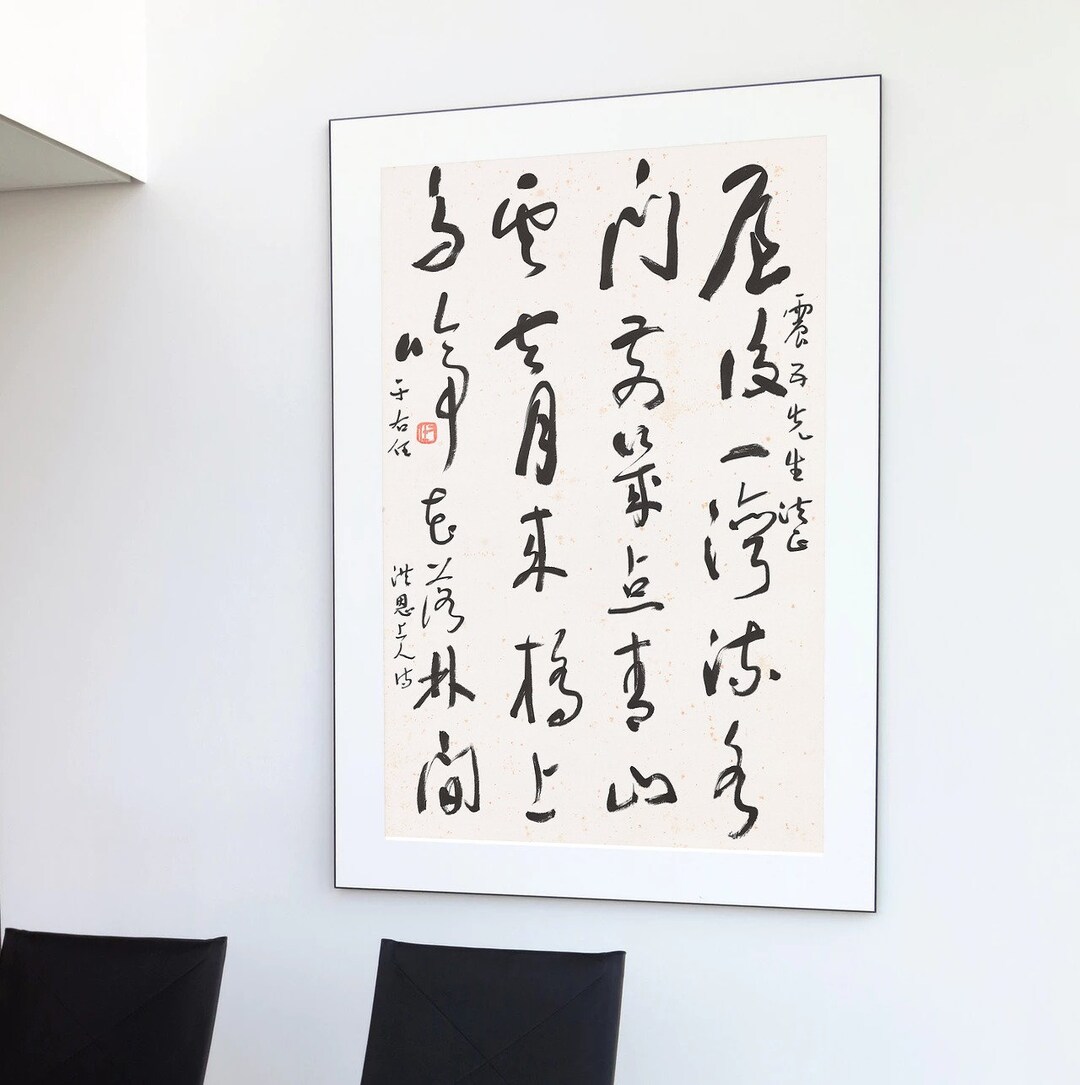 震五先生法正
屋後一灣流水
門前幾点青山
雲去月来橋上
鳥啼花落林間
于右任
洪恩上人詩